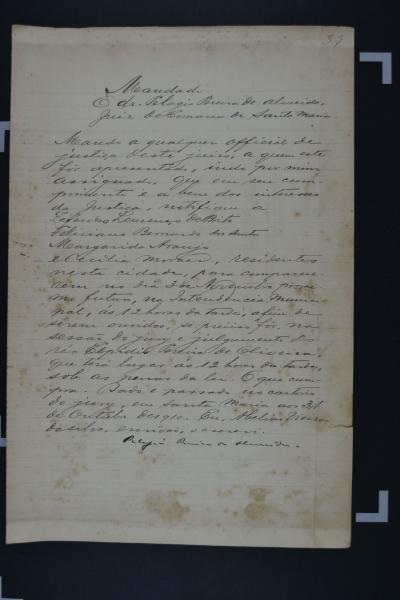 39
Mandado
O dr. Pelagio Pereira de Almeida,
Juiz de Comarca de Santa Maria
Mando a qualquer official de
justiça deste juizo, a quem este
fôr apresentado, indo por mim
assignado, que em seu cum-
primento e a bem dos interesses
da Justiça, notifique a
Lourenço de Brito
Feliciano Bernardo dos Santos
Margarida Araujo
e Cecilia, residentes
nesta cidade, para comparece-
rem no dia 3 de Novembro proxi-
mo futuro, na Intendencia Munici-
pal, ás 12 horas da tarde, afim de
serem ouvidos, se preciso fôr, na
sessão do jury e julgamento do
réo Elpidio Pereira de Oliveira,
que terá lugar ás 12 horas da tarde,
sob as penas da lei. O que cum-
pra. Dado e passado no cartorio
do jury, em Santa Maria aos 31
de Outubro de. Eu,
da Silva, escrivão, o escrevi.
Pelagio Pereira de Almeida.